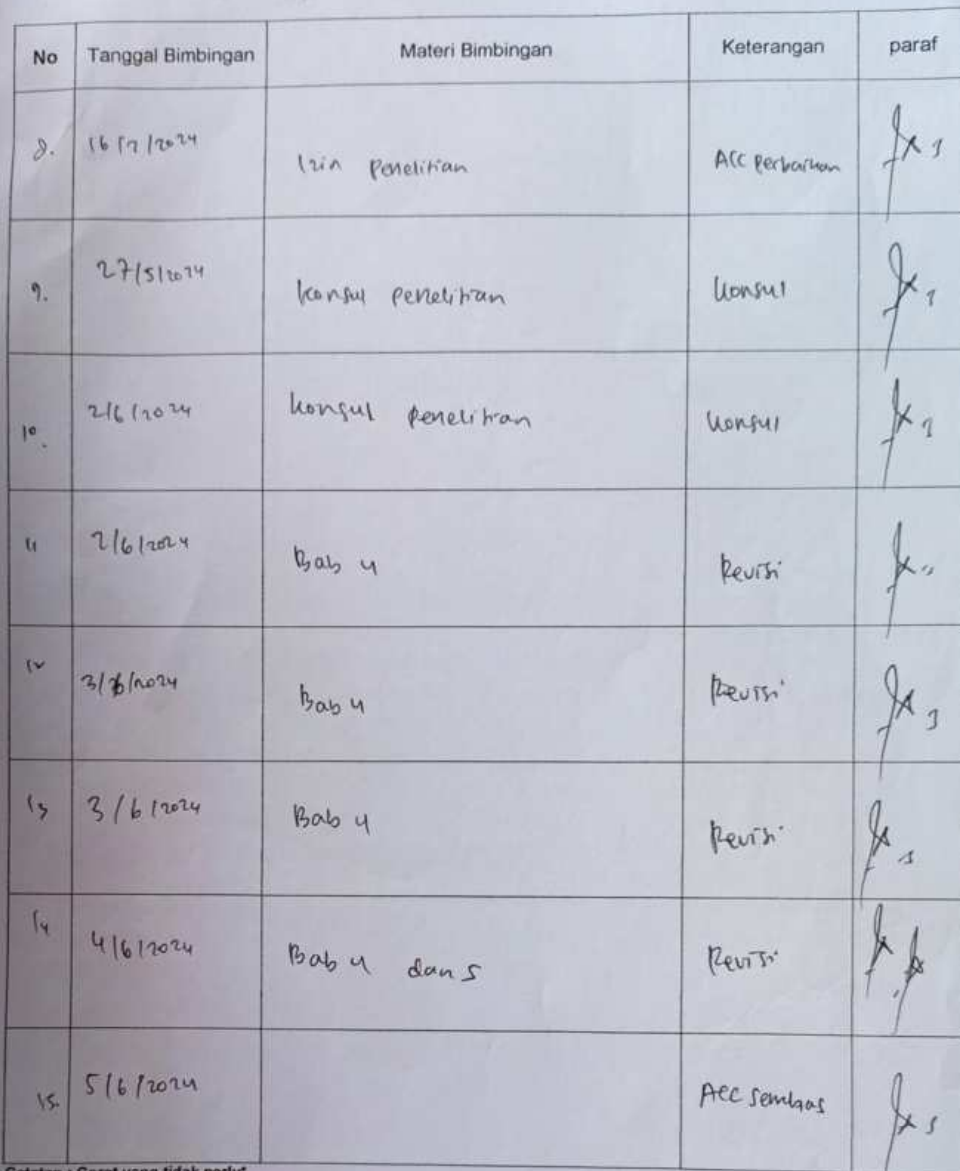 No Tanggal Bimbingan Materi Bimbingan Keterangan paraf
8. 16/2/2024 Izin Penelitian ACC Perbaikan
9. 27/5/2024 Konsul penelitian Konsul
10. 2/6/2024 Konsul Penelitian Konsul
11 2/6/2024 Bab 4 Revisi
12 3/6/2024 Bab 4 Revisi
13 3/6/2024 Bab 4 Revisi
14 4/6/2024 Bab 4 dan 5 Revisi
15. 5/6/2024 ACC Semhas